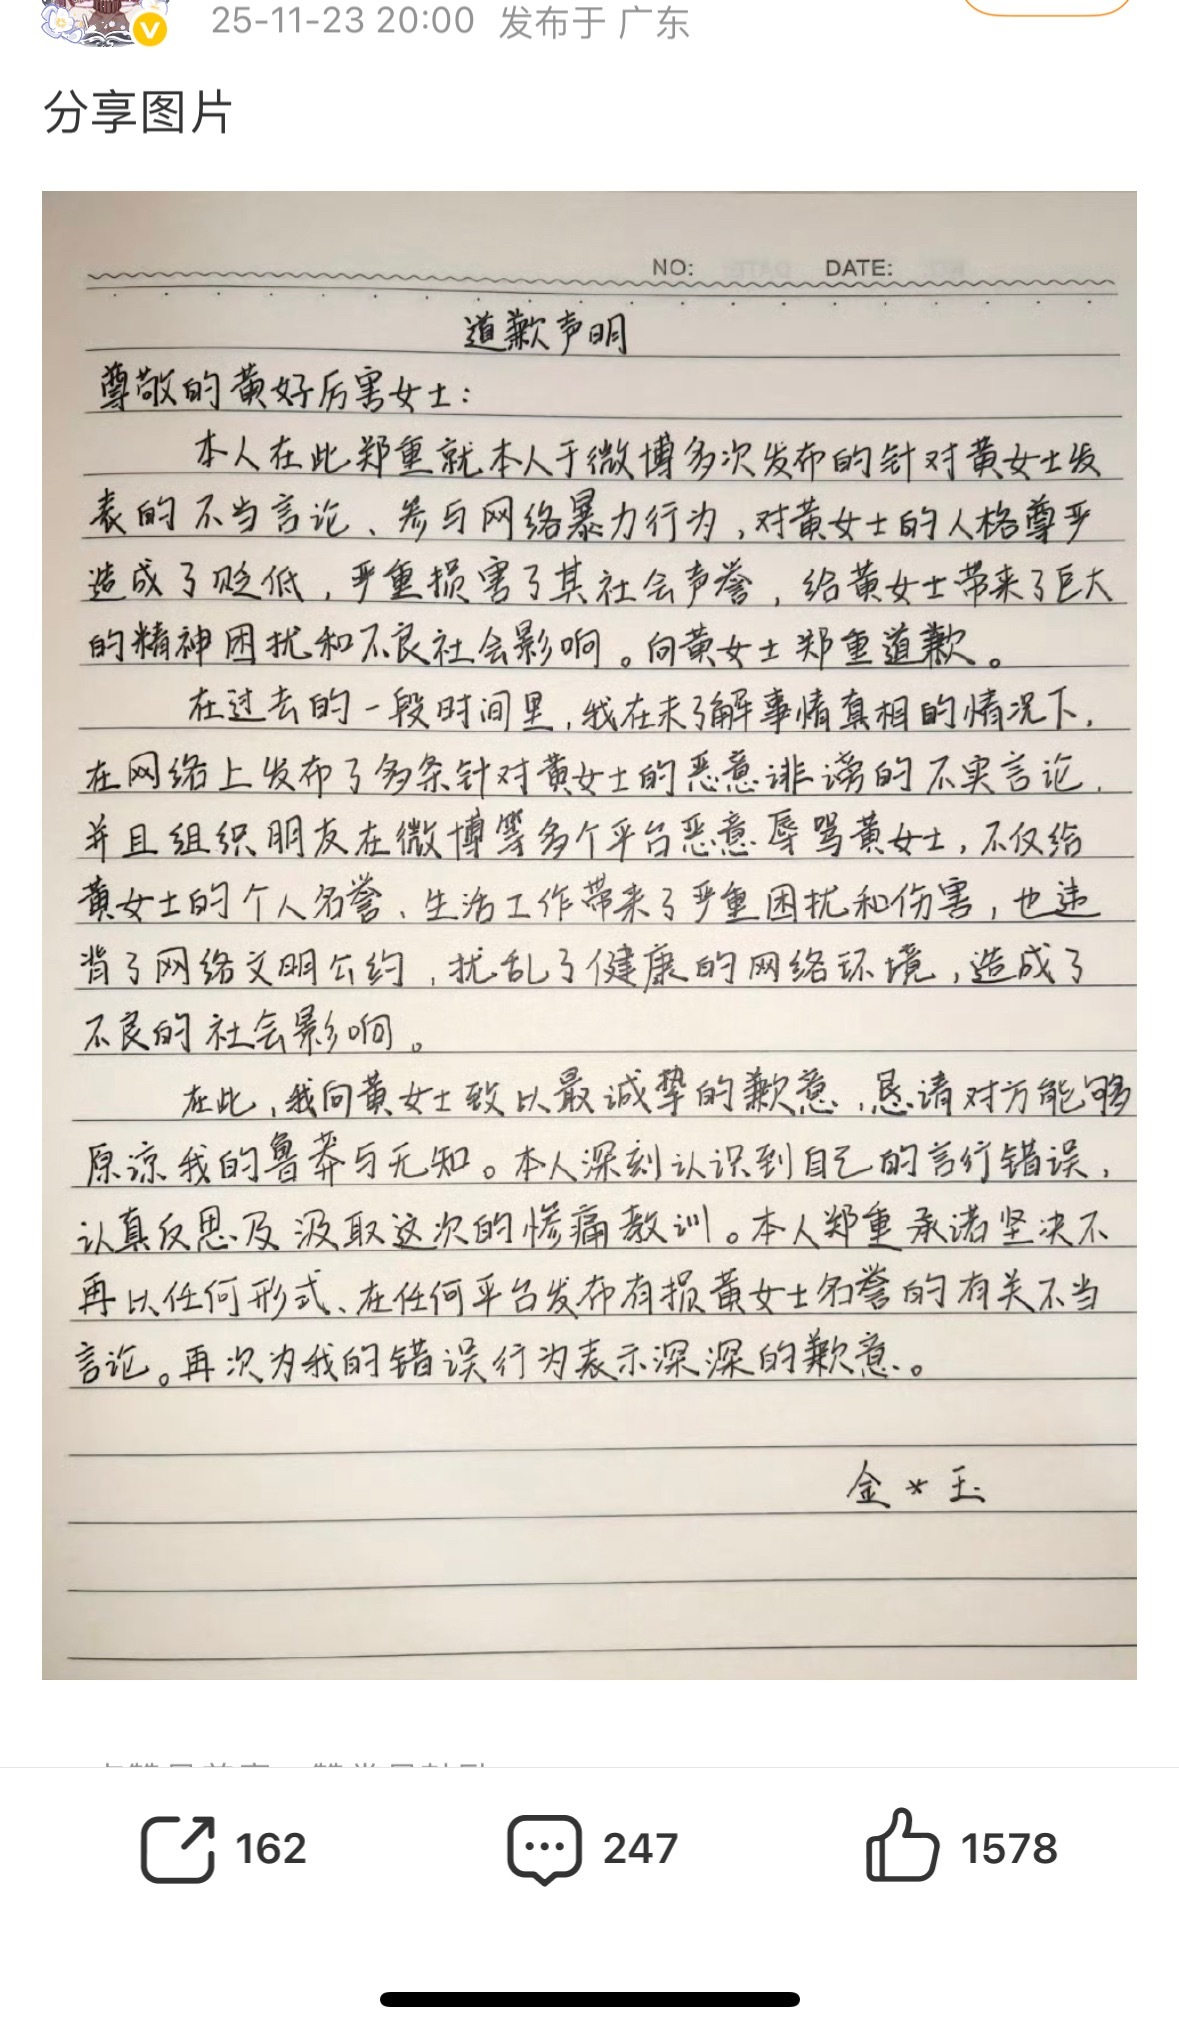 25-11-23 20:00 发布于 广东
分享图片
NO: DATE:
道歉声明
尊敬的黄好厉害女士:
本人在此郑重就本人于微博多次发布的针对黄女士发
表的不当言论、参与网络暴力行为,对黄女士的人格尊严
造成了贬低,严重损害了其社会声誉,给黄女士带来了巨大
的精神困扰和不良社会影响。向黄女士郑重道歉。
在过去的一段时间里,我在未了解事情真相的情况下,
在网络上发布了多条针对黄女士的恶意诽谤的不实言论,
并且组织朋友在微博等多个平台恶意辱骂黄女士,不仅给
黄女士的个人名誉、生活工作带来了严重困扰和伤害,也违
背了网络文明公约,扰乱了健康的网络环境,造成了
不良的社会影响。
在此,我向黄女士致以最诚挚的歉意,恳请对方能够
原谅我的鲁莽与无知。本人深刻认识到自己的言行错误,
认真反思及汲取这次的惨痛教训。本人郑重承诺坚决不
再以任何形式、在任何平台发布有损黄女士名誉的有关不当
言论。再次为我的错误行为表示深深的歉意。
金*玉
162 247 1578